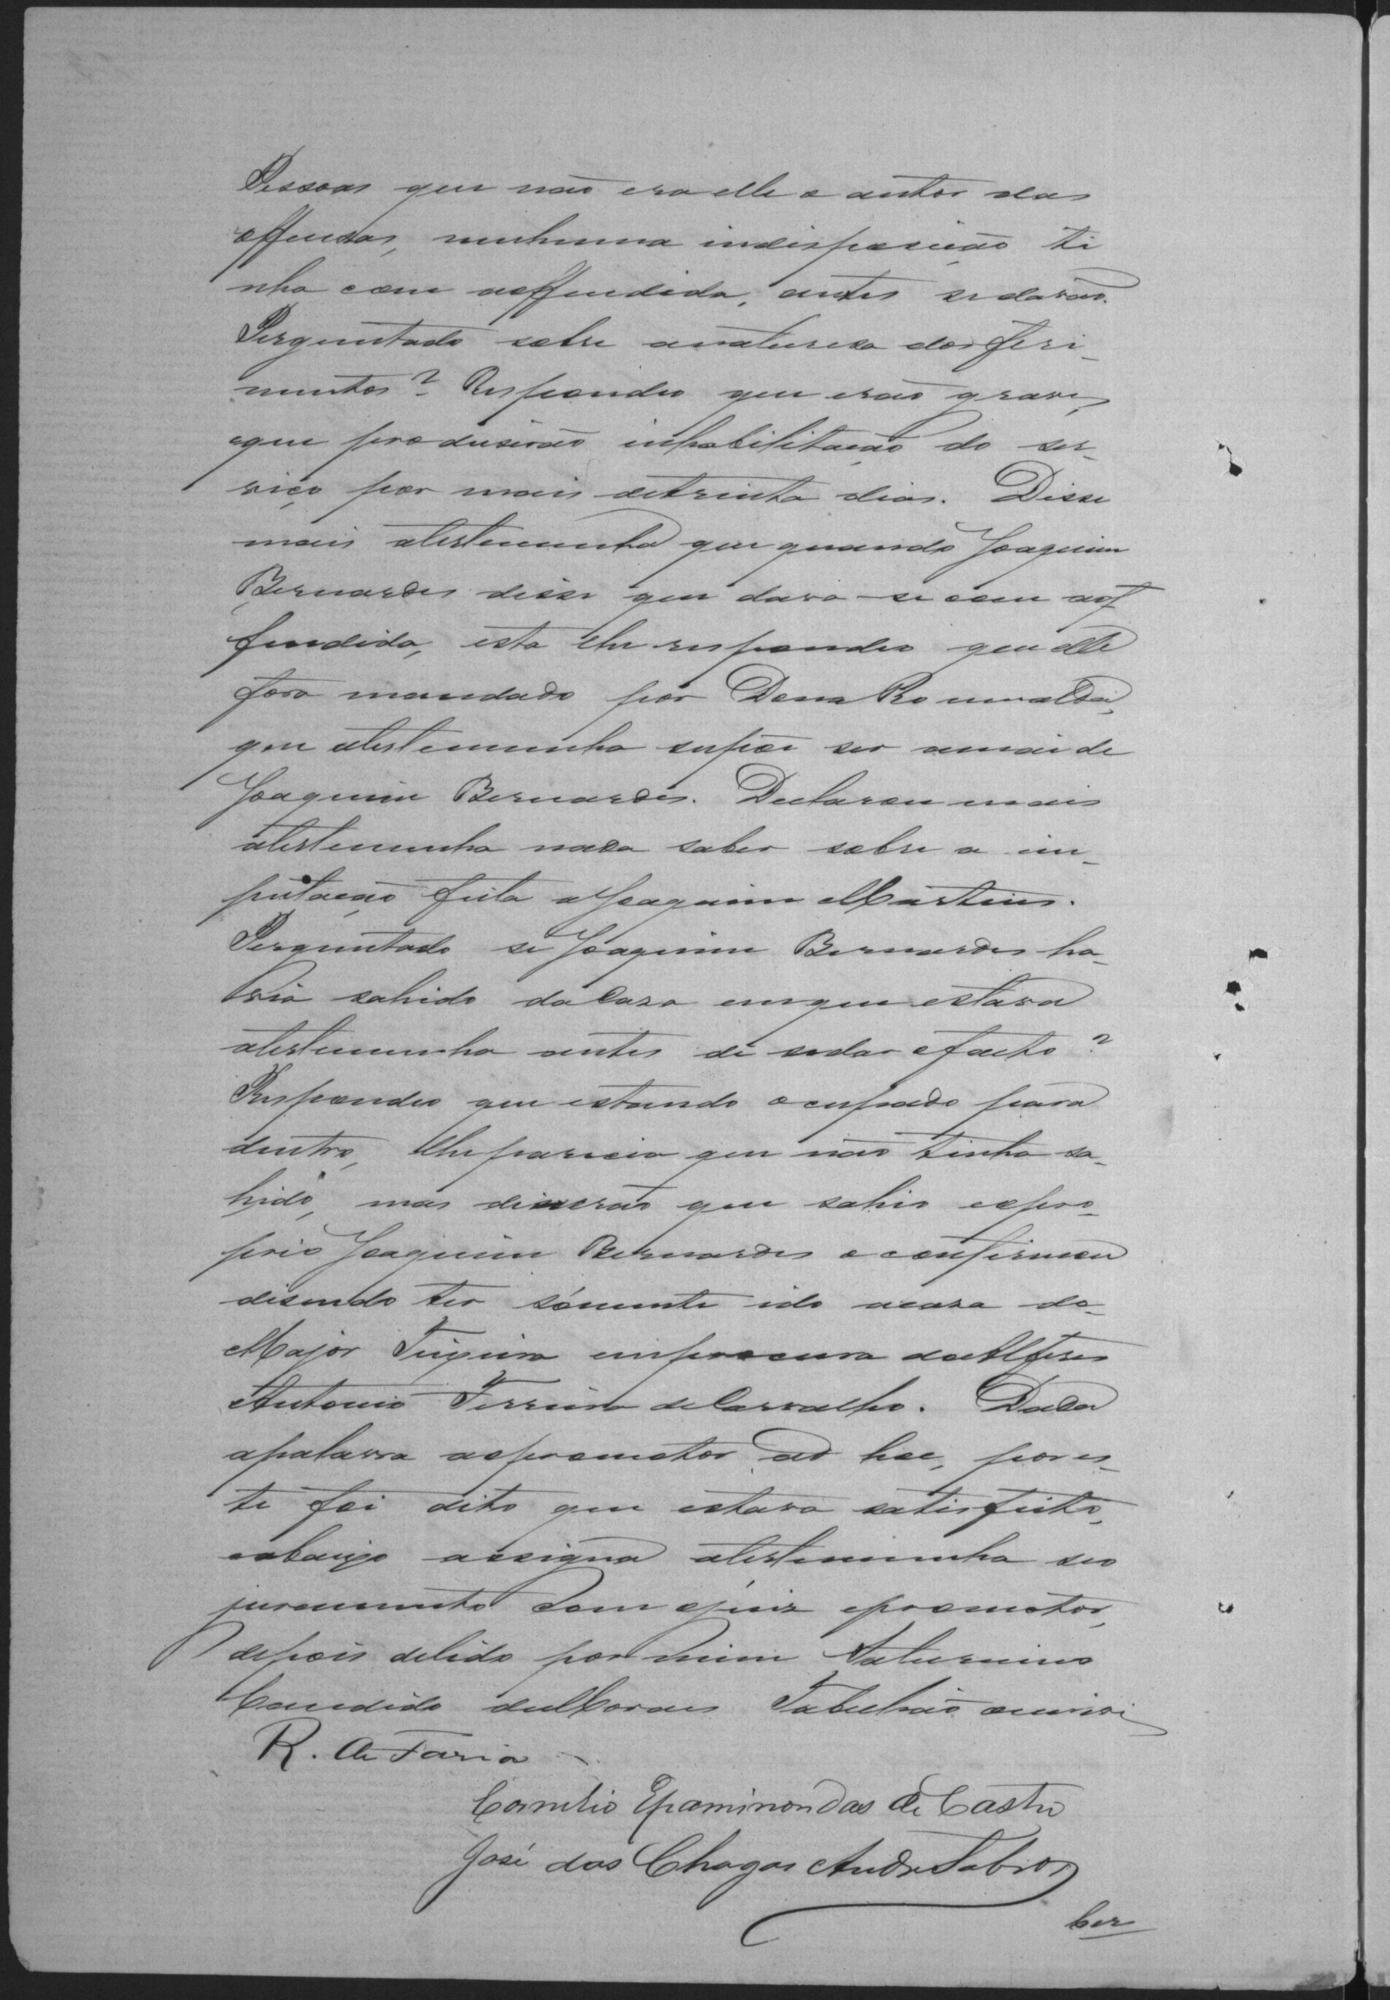 Pessoas que não era elle o autor das
offensas, nenhuma indisposição ti
nha com aoffendida, antes sedavão.
Perguntado sobre anaturesa dos feri-
mentos? Respondeo que erão graves,
eque produsirão inhabilitação do ser-
viço por mais detrinta dias. Disse
mais atestemunha que quando Joaquim
Bernardes disse que dava-se com aof
fendida, esta lhe respondeo que elle
fora mandado por Dona Romualda,
que atestemunha supõe ser amai de
Joaquim Bernardes. Declarou mais
atestemunha nada saber sobre a im-
putação feita aJoaquim Martins.
Perguntado se Joaquim Bernardes ha-
via sahido da Casa emque estava
atestemunha antes de sedar ofacto?
Respondeo que estando occupado para
dentro, lhe parecia que não tinha sa-
hido, mas disserão que sahio eopro-
prio Joaquim Bernardes o confirmou
disendo ter sómente ido acasa do
Major Teixeira emprocura doAlferes
Antonio Ferreira deCarvalho. Dada
apalavra aopromotor ad hoc, por es-
te foi dito que estava satisfeito,
eabaixo assigna atestemunha seo
juramento com ojuiz epromotor,
depois delido por mim Saturnino
Candido deMoraes Tabelião oescrevi
R. de Faria
Cornelio Epaminondas de Castro
José das Chagas Andr
Cer